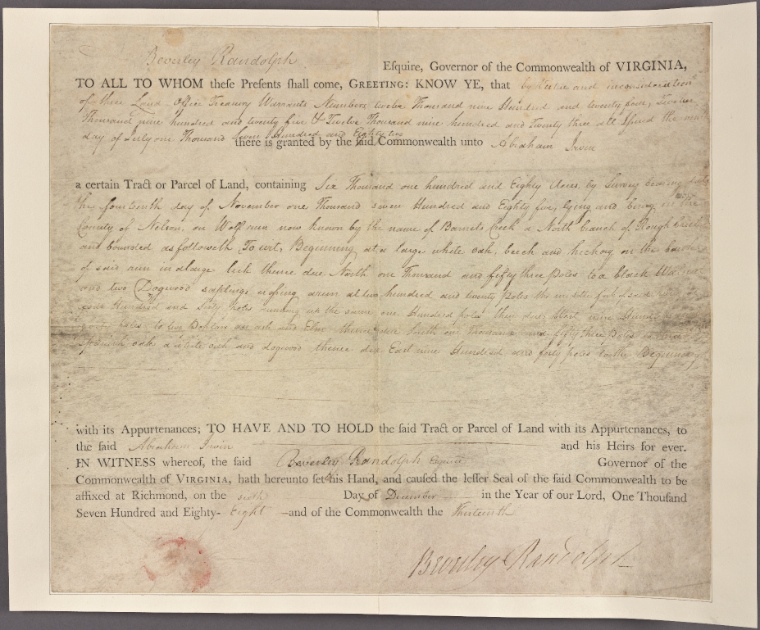 Beverley Randolph Esquire, Governor of the Commonwealth of VIRGINIA,
TO ALL TO WHOM theſe Preſents ſhall come, GREETING: KNOW YE, that by Virtue and in consideration
of three Land Office Treasury Warrants Number twelve Thousand nine Hundred and twenty four, Twelve
Thousand nine hundred and twenty five & Twelve Thousand nine hundred and Twenty three all Issued the
day of July one Thousand Seven Hundred and Eighty two
there is granted by the ſaid Commonwealth unto Abraham Irvin
a certain Tract or Parcel of Land, containing Six Thousand one hundred and Eighty Acres by Survey bearing date
the fourteenth day of November one Thousand seven Hundred and Eighty five, lying and being in the
County of Nelson, on Wolf run now known by the name of Creek a North branch of Rough Creek
and bounded as followeth To wit, Beginning at a large white oak, beech and hickory on the
of said run in a large thence due North one Thousand and fifty three Poles to a black Walnut
and two Dogwood saplings crossing a run at two hundred and twenty Poles
Hundred and Sixty Poles up the same one Hundred poles then due West nine Hundred
poles to two ash and Elm thence due South one thousand and fifty three Poles
oak a white oak and dogwood thence due East nine Hundred and forty poles to the Beginning
with its Appurtenances; TO HAVE AND TO HOLD the ſaid Tract or Parcel of Land with its Appurtenances, to
the ſaid Abraham Irvin and his Heirs for ever.
IN WITNESS whereof, the ſaid Beverley Randolph Esquire Governor of the
Commonwealth of VIRGINIA, hath hereunto ſet his Hand, and cauſed the leſſer Seal of the ſaid Commonwealth to be
affixed at Richmond, on the sixth Day of December in the Year of our Lord, One Thouſand
Seven Hundred and Eighty- Eight and of the Commonwealth the Thirteenth
Beverley Randolph